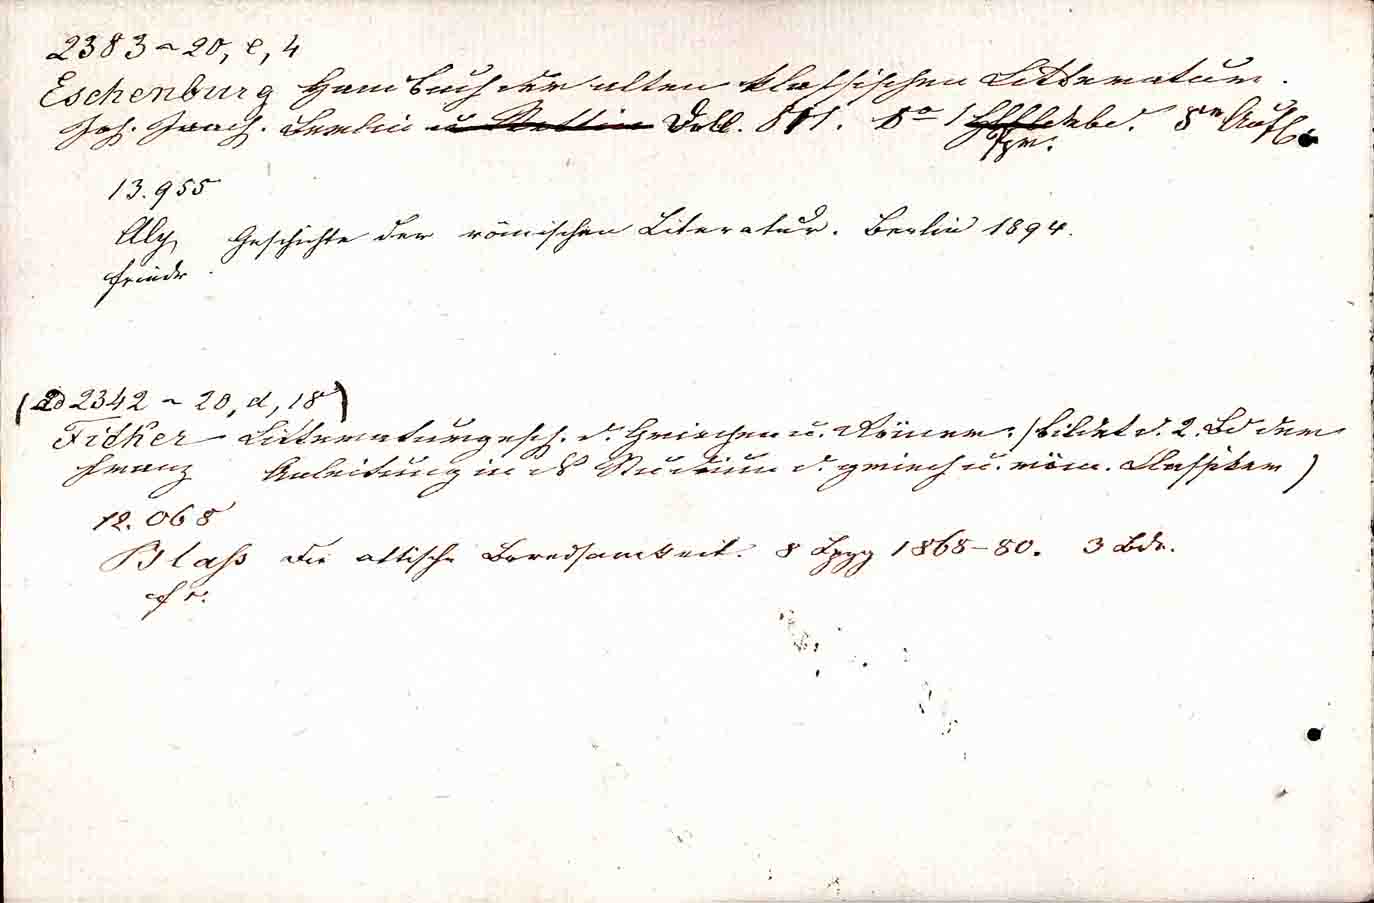 2383 ~ 20, e, 4
Eschenburg Handbuch der alten klassischen Litteratur.
Joh. Joach. Berlin u Stettin 8° 1 5te Aufl.
13.955
Aly Geschichte der römischen Literatur. Berlin 1894.
Friedr.
(ad 2342 ~ 20, d, 18)
Ficker Litteraturgesch. d. Griechen u. Römer. (bildet d. 2. Bd der
Franz Anleitung in d Studium d. griech u. röm. Classiker)
12.068
Blaß Die attische Beredsamkeit. 8 Lpzg 1868-80. 3 Bde.
Fr.